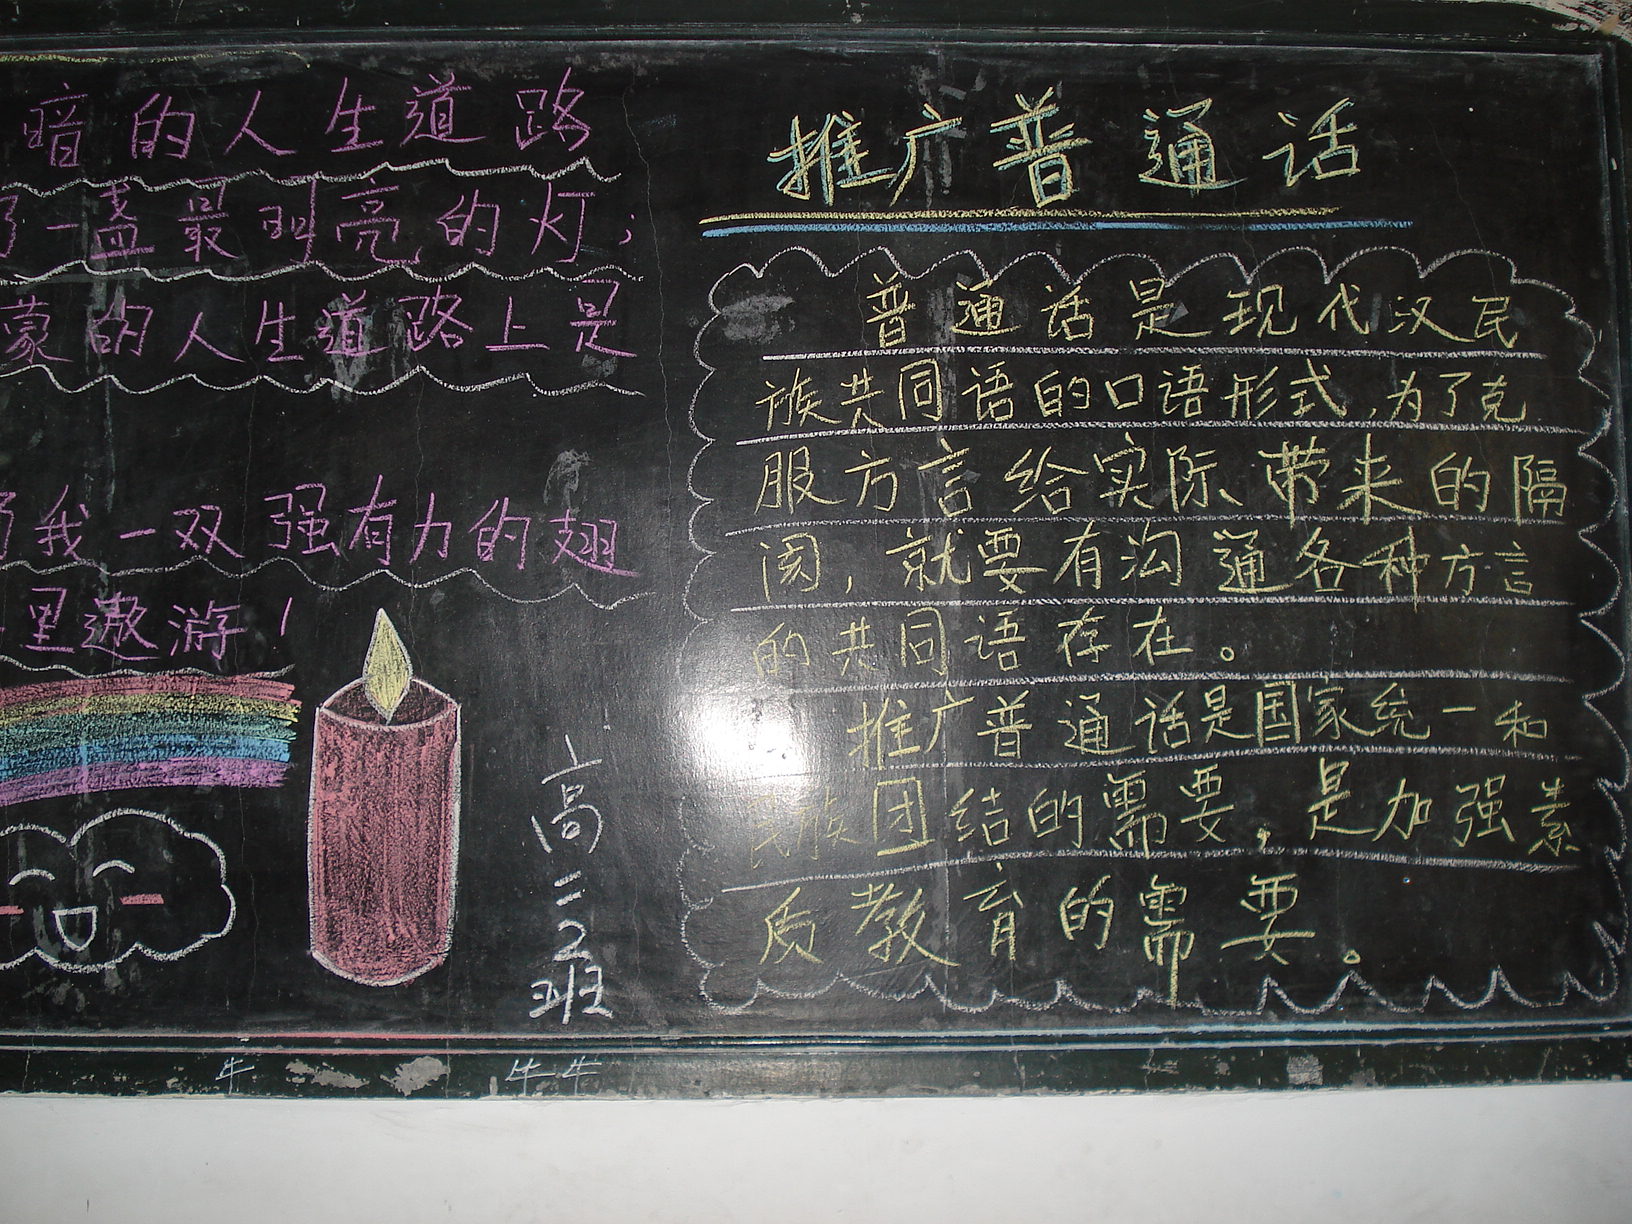 暗的人生道路
了一盏最明亮的灯;
蒙的人生道路上是
我一双强有力的翅
里遨游!
高二2班
推广普通话
普通话是现代汉民
族共同语的口语形式,为了克
服方言给实际、带来的隔
阂,就要有沟通各种方言
的共同语存在。
推广普通话是国家统一和
民族团结的需要,是加强素
质教育的需要。
牛
牛牛